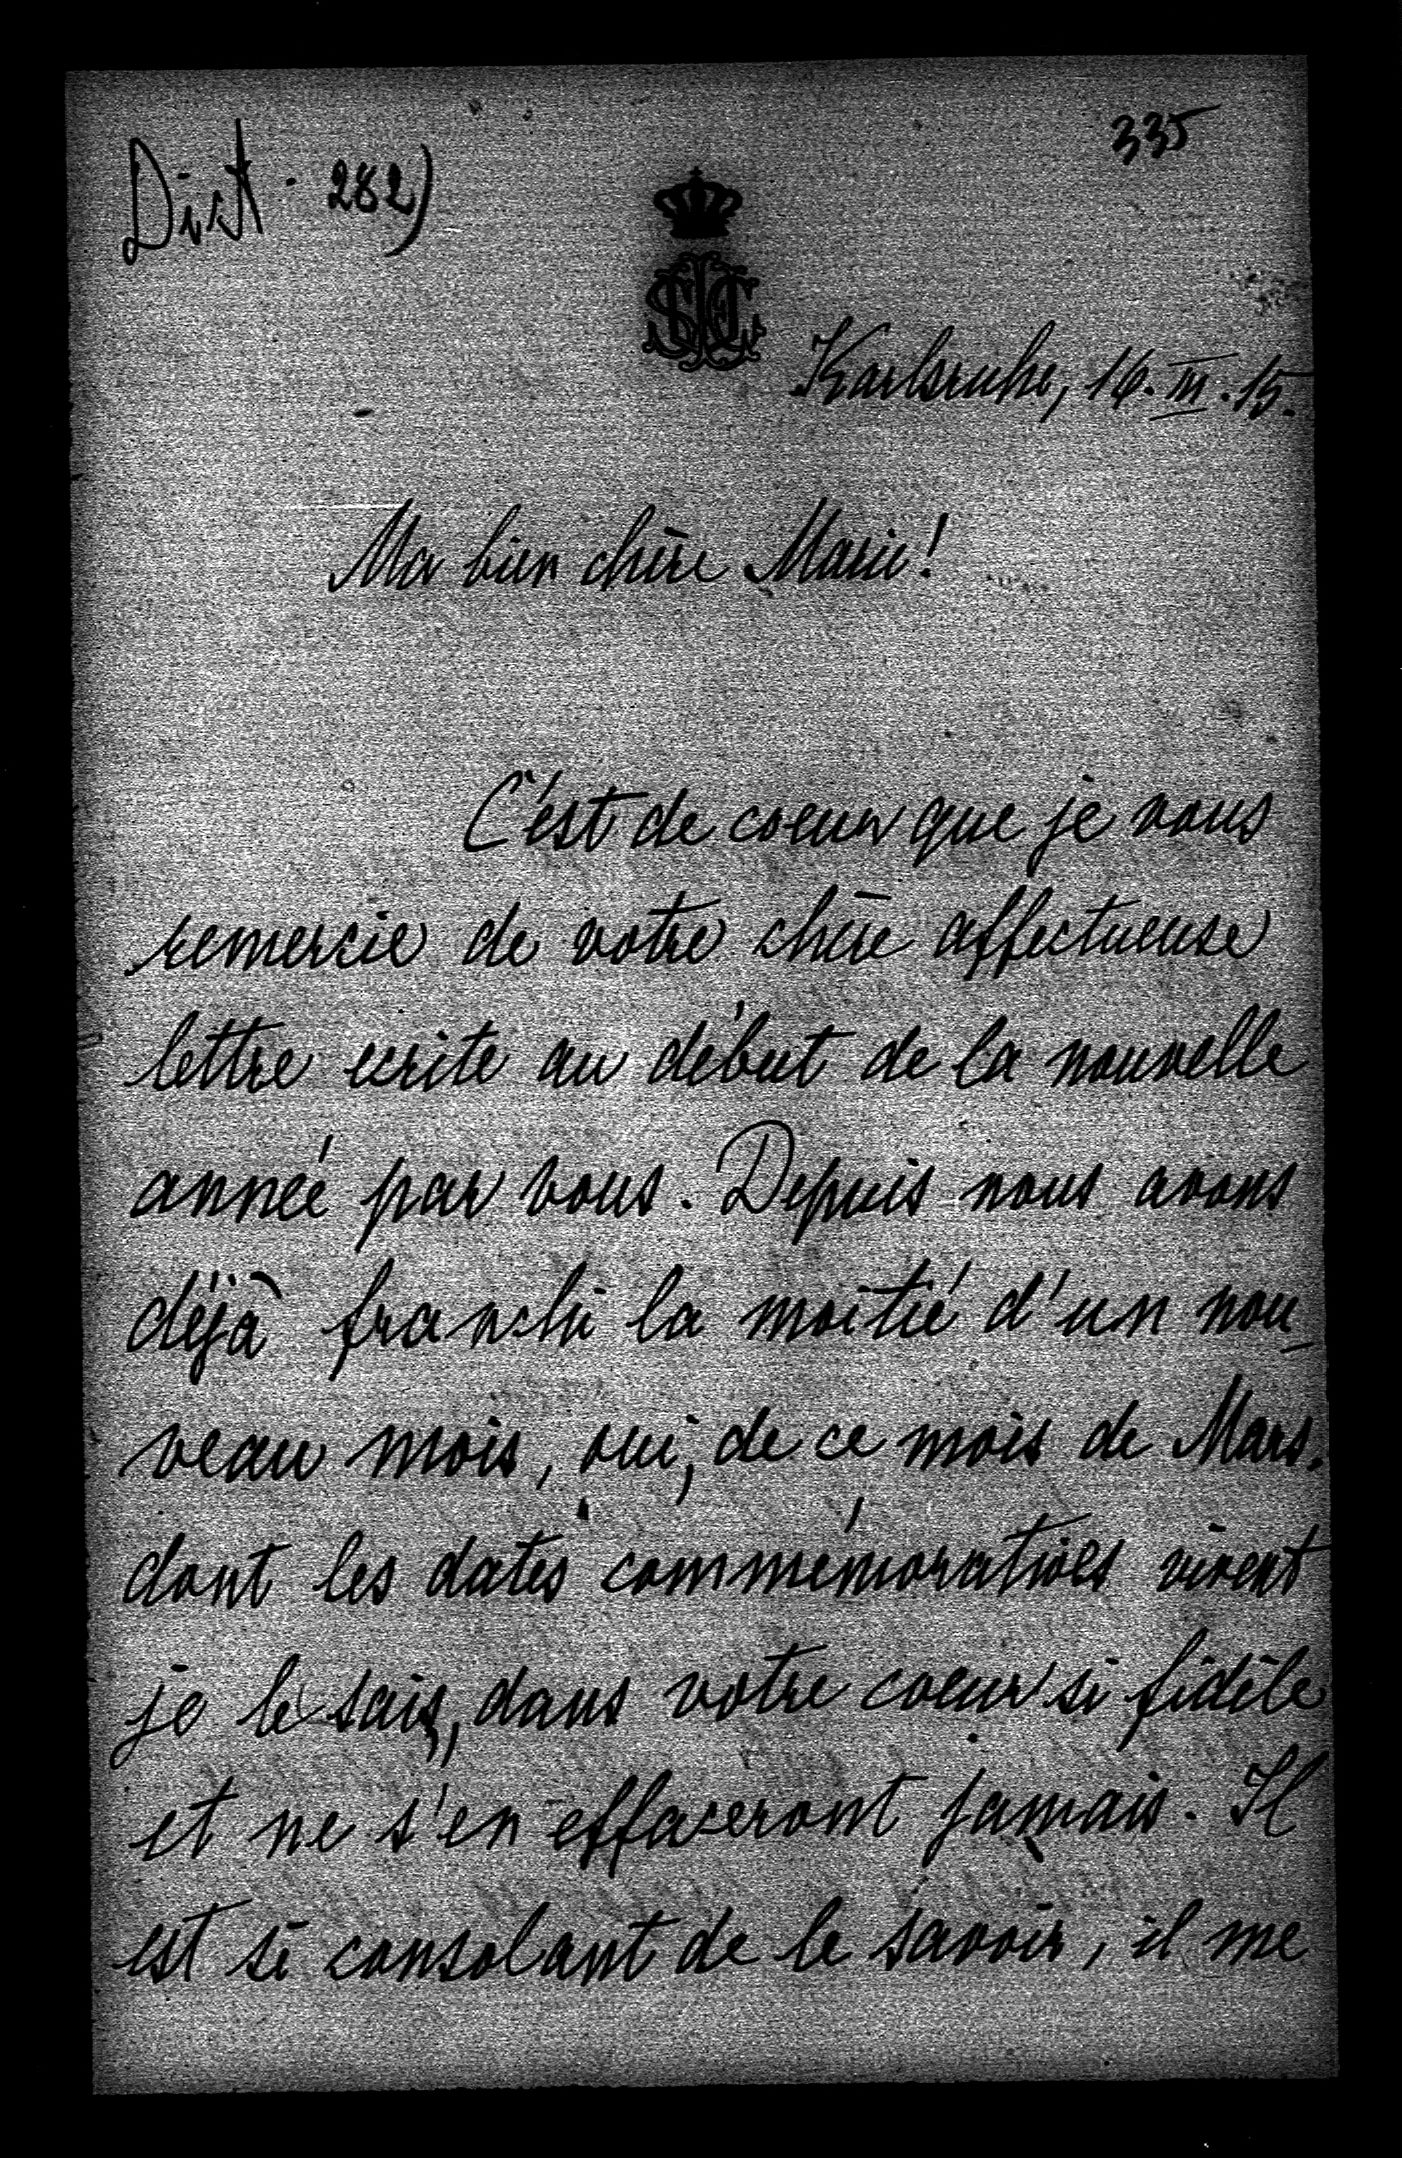 335
Dict. 282)
Karlsruhe, 16. III. 15.
Ma bien chère Marie!
C'est de coeur que je vous
remercie de votre chère affectueuse
lettre ecrite au début de la nouvelle
année par vous. Depuis nous avons
déjà franchi la moitié d'un nou_
veau mois, oui, de ce mois de Mars.
dont les dates commémoratives vivent
je le sais, dans votre coeur si fidèle
et ne s'en effaceront jamais. Il
est si consolant de le savoir, il me